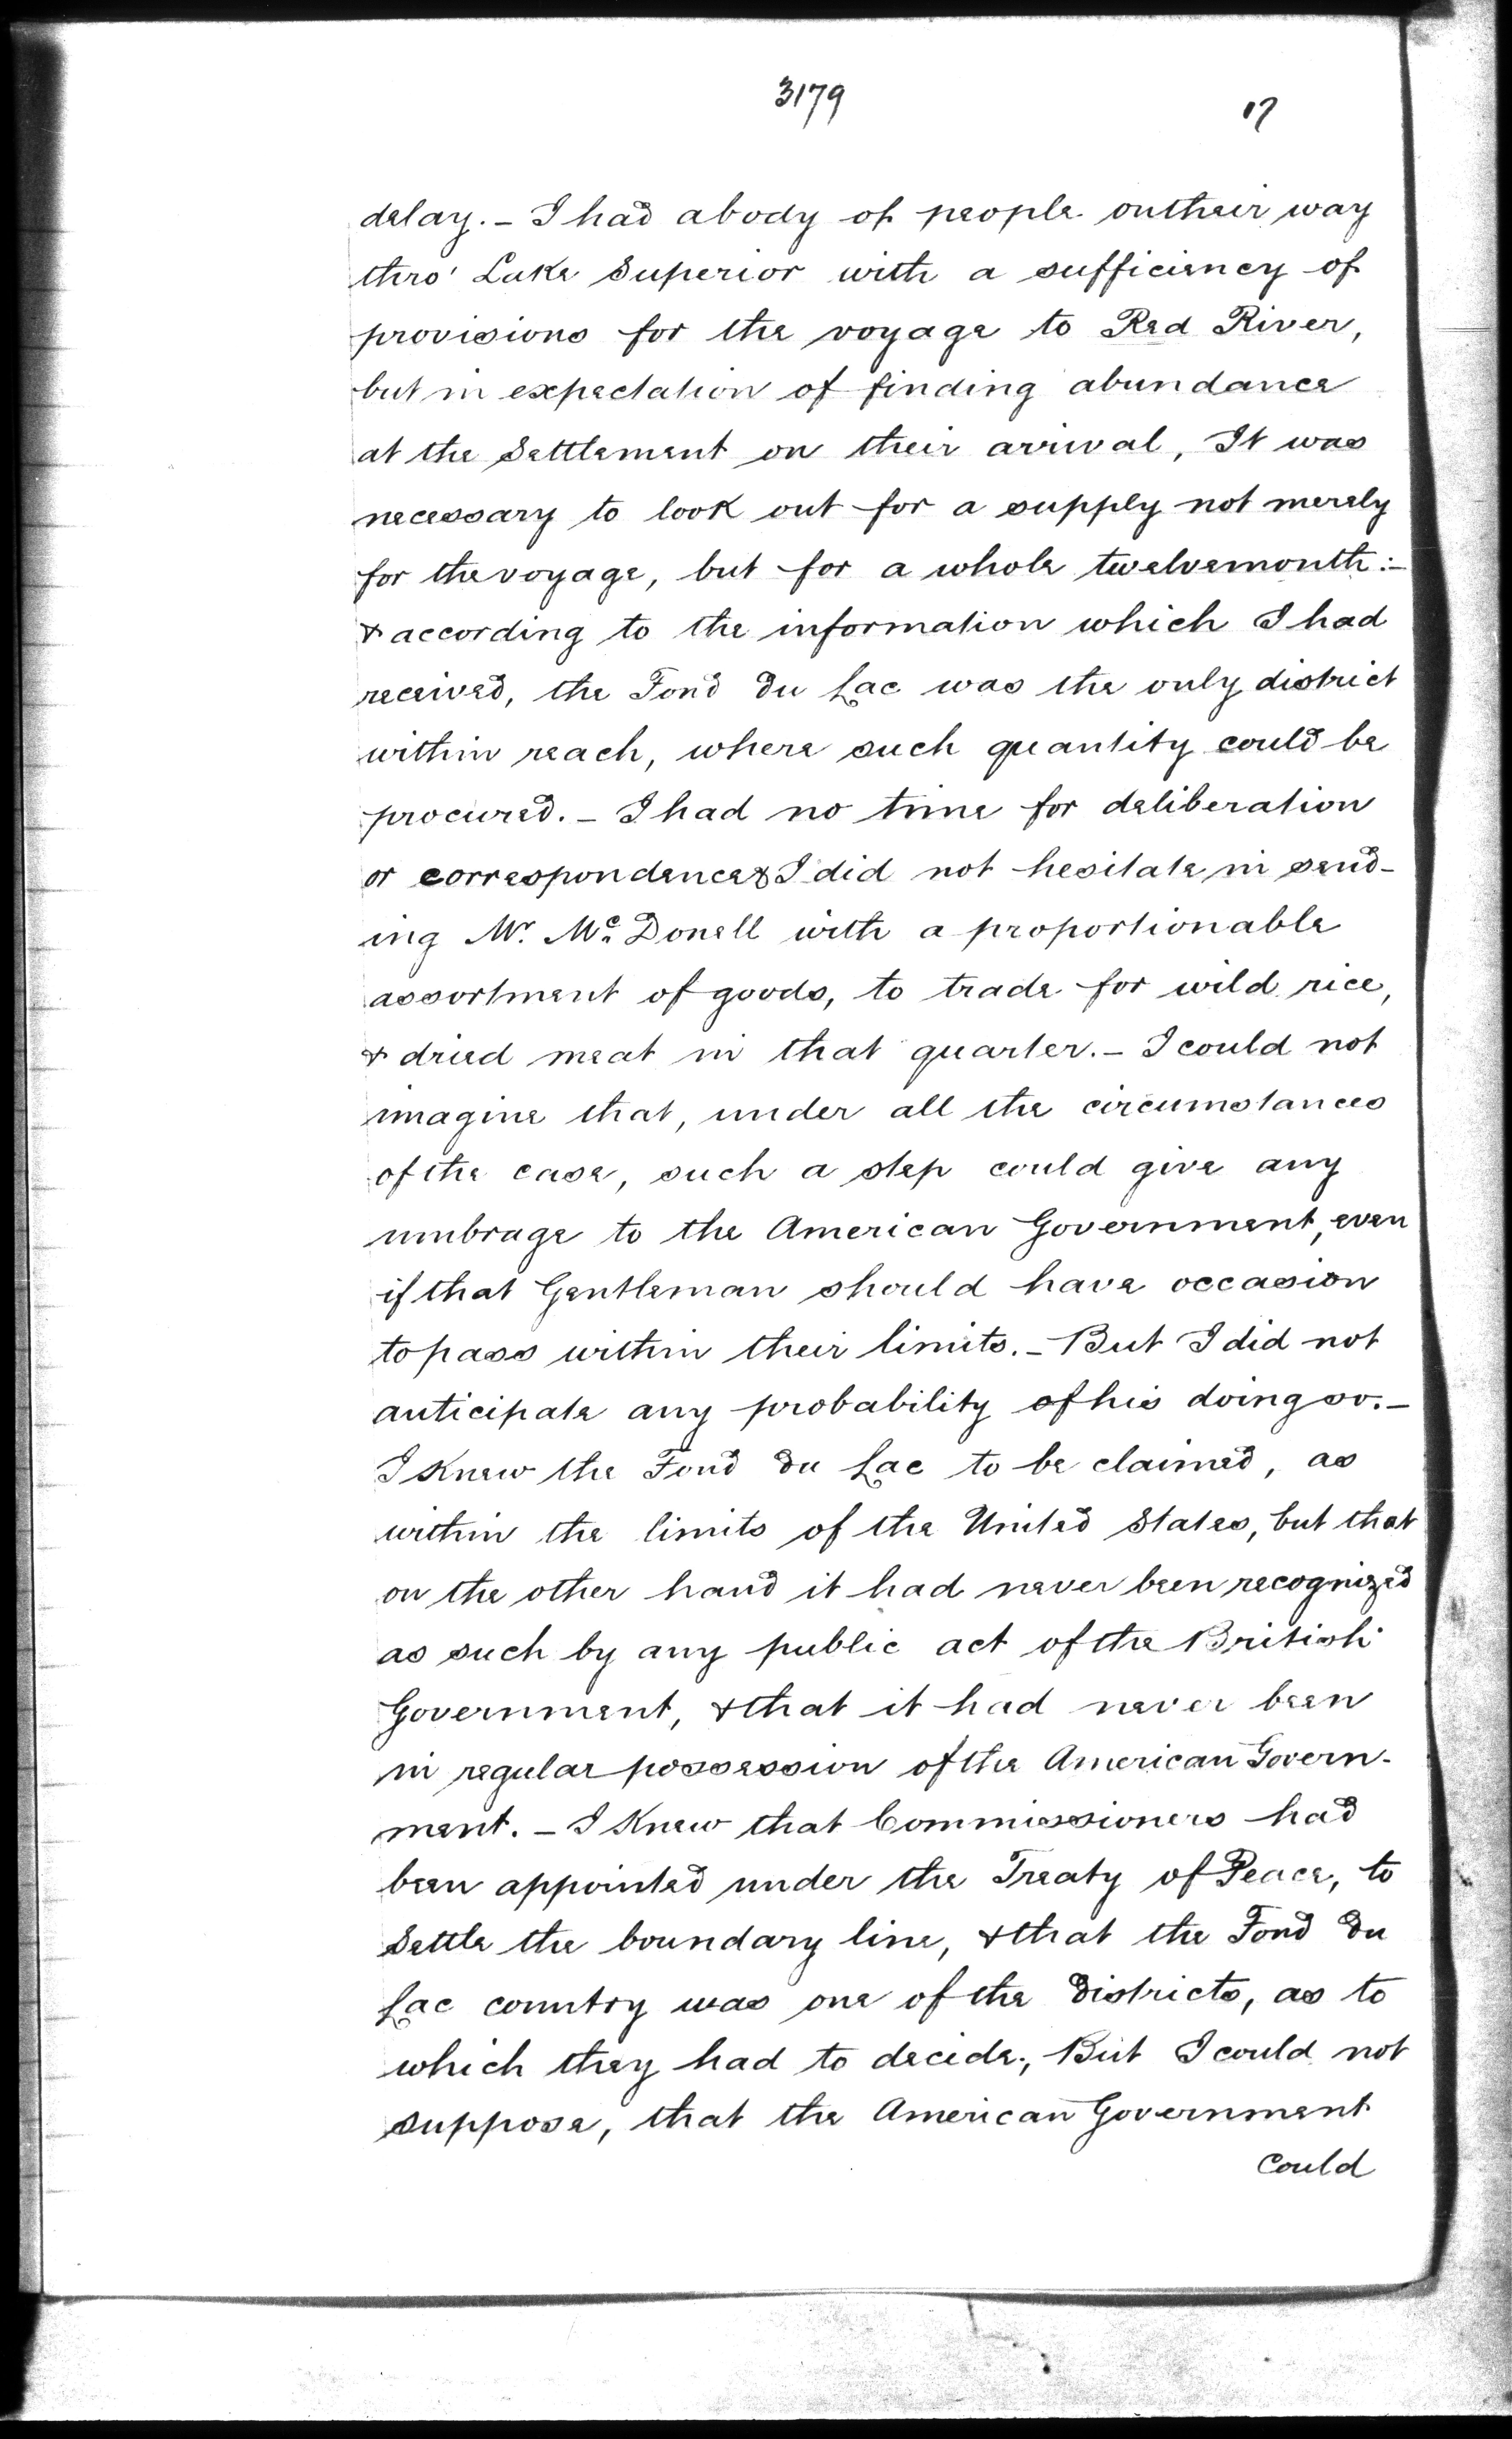 3179
17
delay. – I had a body of people on their way
thro' Lake Superior with a sufficiency of
provisions for the voyage to Red River,
but in expectation of finding abundance
at the Settlement on their arrival, It was
necessary to look out for a supply not merely
for the voyage, but for a whole twelvemonth:–
& according to the information which I had
received, the Fond du Lac was the only district
within reach, where such quantity could be
procured. – I had no time for deliberation
or correspondence & I did not hesitate in send-
ing Mr. Mc. Donell with a proportionable
assortment of goods, to trade for wild rice,
& dried meat in that quarter. – I could not
imagine that, under all the circumstances
of the case, such a step could give any
umbrage to the American Government, even
if that Gentleman should have occasion
to pass within their limits. – But I did not
anticipate any probability of his doing so. –
I knew the Fond du Lac to be claimed, as
within the limits of the United States, but that
on the other hand it had never been recognized
as such by any public act of the British
Government, & that it had never been
in regular possession of the American Govern-
ment. – I knew that Commissioners had
been appointed under the Treaty of Peace, to
Settle the boundary line, & that the Fond du
Lac country was one of the Districts, as to
which they had to decide; But I could not
suppose, that the American Government
could